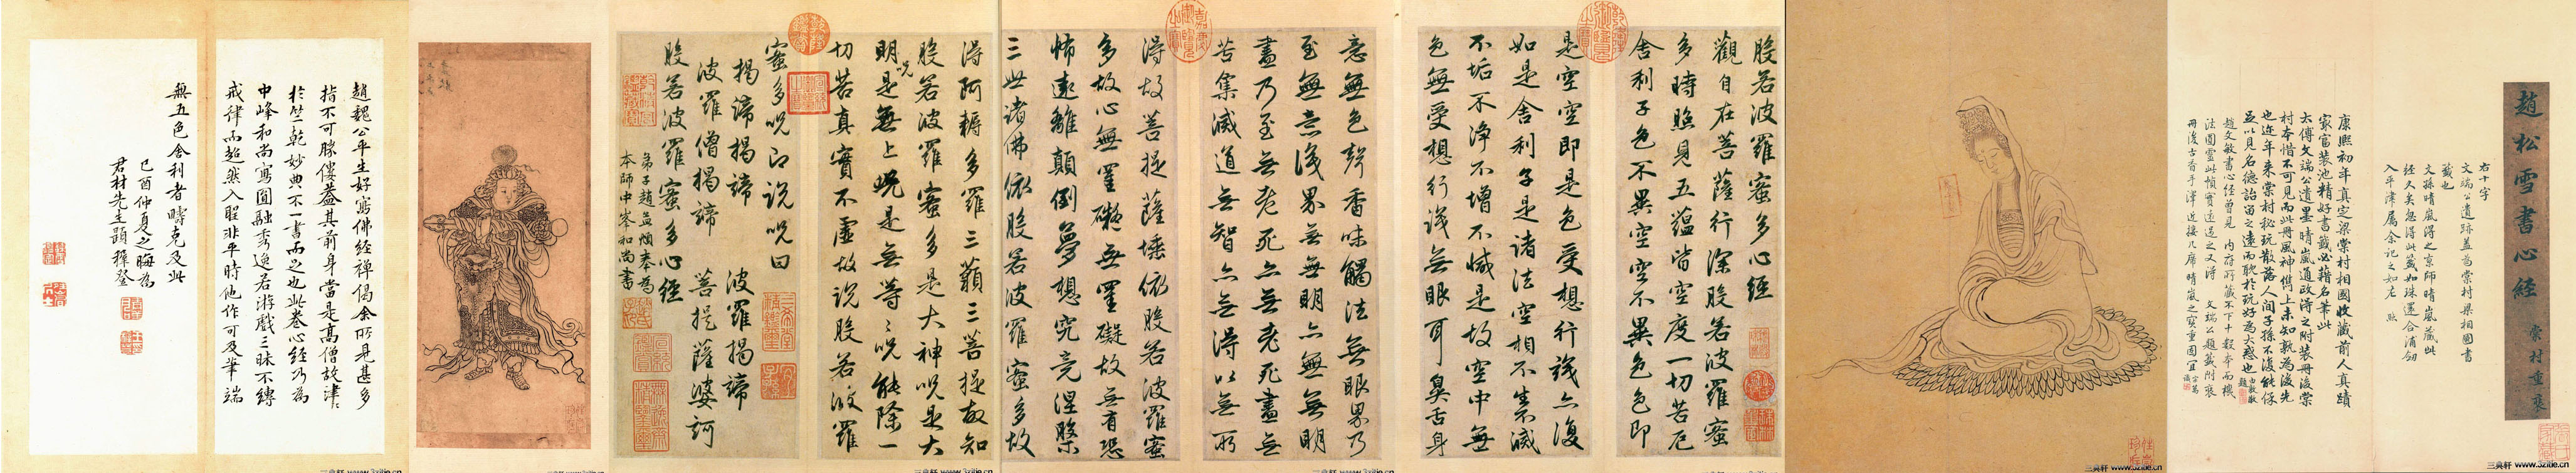 趙松雪書心經 棠村重裝
右十字
文端公遺跡蓋為棠村梁相國書
籤也
文孫晴嵐得之京師晴嵐藏此
經久矣忽得此籤如珠還合浦劍
入平津屬余記之如左
康熙初年真定梁棠村相國收藏前人真蹟
家富裝池精好書籤必藉名筆此
太傅文端公遺墨晴嵐通政得之附裝冊後棠
村本惜不可見而此冊風神儁上未知孰為後先
也近年来棠村秘玩散落人间子孫不復能保
益以見名德詒留之遠而耽於玩好為大惑也
趙文敏書心经曾見 内府所藏不下十数本而機
法圓靈此幀實遠過之又得 文端公題籤附裝
冊後古香手澤近接几席晴嵐之寶重固宜
般若波羅蜜多心經
觀自在菩薩行深般若波羅蜜
多時照見五蘊皆空度一切苦厄
舍利子色不異空空不異色色即
是空空即是色受想行識亦復
如是舍利子是諸法空相不生不滅
不垢不淨不增不減是故空中無
色無受想行識無眼耳鼻舌身
意無色聲香味觸法無眼界乃
至無意識界無無明亦無無明
盡乃至無老死亦無老死盡無
苦集滅道無智亦無得以無所
得故菩提薩埵依般若波羅蜜
多故心無罣礙無罣礙故無有恐
怖遠離顛倒夢想究竟涅槃
三世諸佛依般若波羅蜜多故
得阿耨多羅三藐三菩提故知
般若波羅蜜多是大神呪是大
明呪是無上呪是無等等呪能除一
切苦真實不虛故說般若波羅
蜜多呪即說呪曰
揭諦揭諦 波羅揭諦
波羅僧揭諦 菩提薩婆訶
般若波羅蜜多心經
弟子趙孟頫奉為
本師中峯和尚書
趙魏公平生好寫佛經禪偈余所見甚多
指不可勝僂蓋其前身當是高僧故津津
於竺乾妙典不一書而足也此卷心經乃為
中峰和尚寫圓融秀逸若游戲三昧不縛
戒律而超然入聖非平時他作可及筆端
無五色舍利者疇克及此
己酉仲夏之晦為
君材先生題穉登
三典轩 www.3zitie.cn
三典轩 www.3zitie.cn
三典轩 www.3zitie.cn
三典轩 www.3zitie.cn
三典轩 www.3zitie.cn